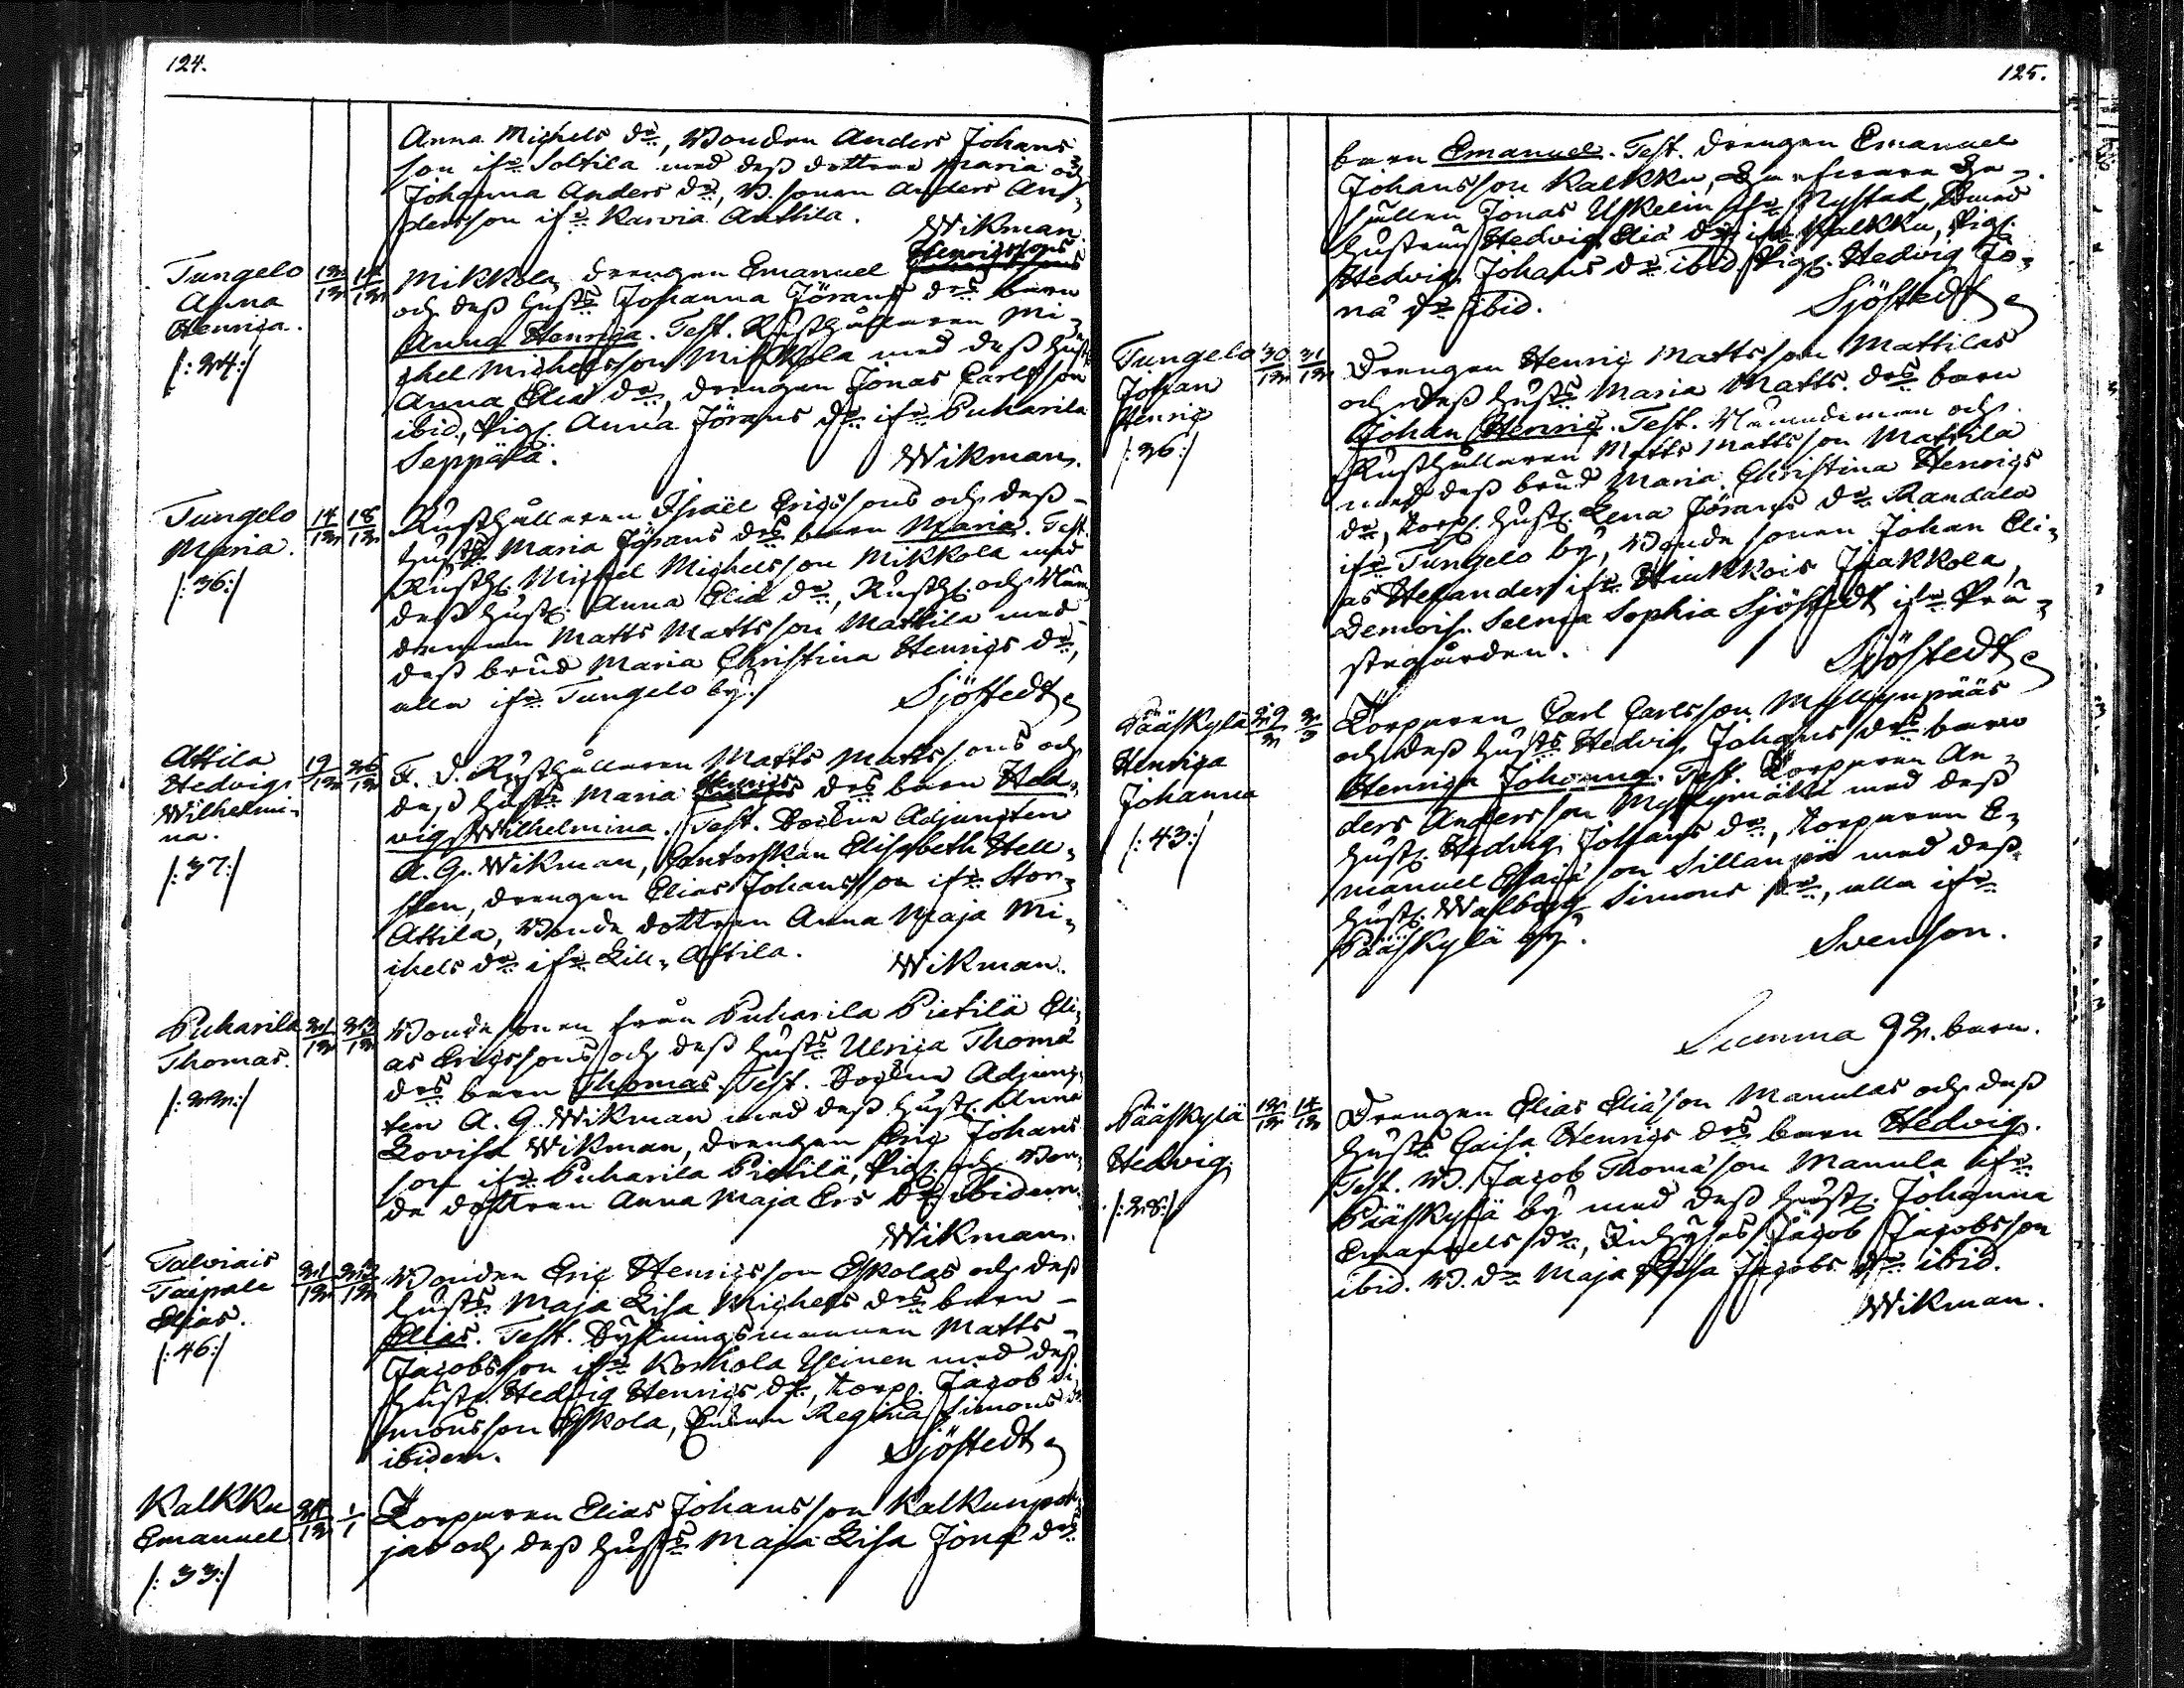 124.
Anna Michels dr, Bonden Anders Johans
son ifr Soltila med dess dottrar Maria och
Johanna Anders dr, B. sonen Anders An-
dersson ifr Karvia Anttila.
Wikman
Tungelo
Anna
Henrica.
/: 24:/
12/12 14/12
Mikkola drengen Emanuel Henricssons
och dess hustrs Johanna Jörans drs barn
Anna Henrica. Test. Rusthållaren Mi-
chel Michelsson Mikkola med dess hustr
Anna Eliæ dr, drengen Jonas Carlsson
ibid., Pig. Anna Jörans dr ifr Puharila
Seppälä.
Wikman.
Tungelo
Maria.
/: 36:/
14/12 18/12
Rusthållaren Israël Ericssons och dess
hustrs Maria Jörans drs barn Maria. Test.
Rusth. Michel Michelsson Mikkola med
dess hust. Anna Eliæ dr, Rusth. och Näm-
deman Matts Mattsson Mattila med
dess brud Maria Christina Henrics dr,
alla ifr Tungelo by.
Sjöstedt
Attila
Hedvig
Wilhelmi-
na.
/: 37:/
19/12 26/12
F. d. Rusthållaren Matts Mattssons och
dess hustrs Maria Henrics drs barn Hed-
vig Wilhelmina. Test. Sockne Adjuncten
A. G. Wikman, Cantorskan Elisabeth Hell-
sten, drengen Elias Johansson ifr Stor-
Attila, Bonde dottren Anna Maja Mi-
chels dr ifr Lill-Attila.
Wikman.
Puharila
Thomas.
/: 22:/
21/12 23/12
Bonde sonen från Puharila Pietilä Eli-
as Ericssons och dess hustrs Ulrica Thomæ
drs barn Thomas. Test. Sockne Adjunc-
ten A. G. Wikman med dess hust. Anna
Lovisa Wikman, drengen Eric Johans
son ifr Puharila Pietilä, Pig. och Bon-
de dottren Anna Maja Ers dr ibidem.
Wikman.
Talviais
Taipale
Elias.
/: 46:/
21/12 23/12
Bonden Eric Henricsson Eskolas och dess
hustrs Maja Lisa Michels drs barn
Elias. Test. Dykningsmannen Matts
Jacobsson ifr Korhola Yleinen med dess
hust. Hedvig Henrics dr, torp. Jacob Si-
monsson Eskola, Enkan Regina Simons dr
ibidem.
Sjöstedt
Kalkku
Emanuel
/: 33:/
24/12 1/1
Torparen Elias Johansson Kalkunpoh-
jas och dess hustrs Maja Lisa Jonæ drs
125.
barn Emanuel. Test. drengen Emanuel
Johansson Kalkku, Garfvare Ge-
sällen Jonas Uskelin ifr Nystad, Smed
hustrun Hedvig Eliæ dr ifr Kalkku, Pig.
Hedvig Johans dr ibid. Pig. Hedvig Jo-
næ dr ibid.
Sjöstedt
Tungelo
Johan
Henric
/: 26:/
30/12 31/12
Drengen Henric Mattsson Mattilas
och dess hustrs Maria Matts drs barn
Johan Henric. Test. Nämndeman och
Rusthållaren Matts Mattsson Mattila
med dess brud Maria Christina Henrics
dr, Torp. hust. Lena Jörans dr Randala
ifr Tungelo by, Bonde sonen Johan Eli-
as Helander ifr Hiukkois Jaakkola,
Demois. Selma Sophia Sjöstedt ifr Prä-
stegården.
Sjöstedt
Pääskylä
Henrica
Johanna
/: 43:/
Torparen Carl Carlsson Myllynpääs
och dess hustrs Hedvig Johans drs barn
Henrica Johanna. Test. Torparen An-
ders Andersson Myllymäki med dess
hust. Hedvig Johans dr, torparen E-
manuel Esaiæ son Sillanpä med dess
hust. Walborg Simons dr, alla ifr
Pääskylä by.
Svenson.
Summa 92. barn.
Pääskylä
Hedvig.
/: 28:/
12/12 14/12
Drengen Elias Eliæson Manulas och dess
hustrs Caisa Henrics drs barn Hedvig.
Test. B. Jacob Thomæson Manula ifr
Pääskylä by med dess hust. Johanna
Emanuels dr, Inhyses Jacob Jacobsson
ibid. B. dr Maja Caisa Jacobs dr ibid.
Wikman.